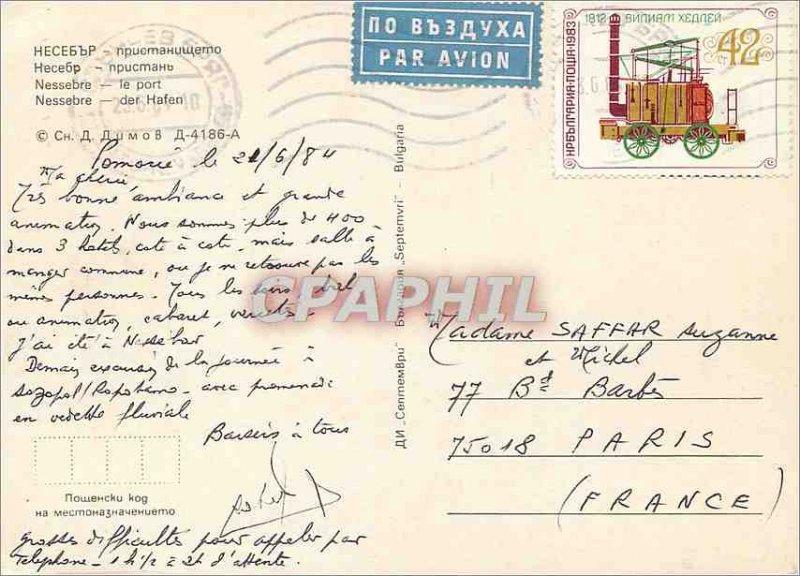 НЕСЕБЪР – пристанището
Несебр – пристань
Nessebre – le port
Nessebre – der Hafen
© Сн. Д. Димов Д-4186-А
ПО ВЪЗДУХА
PAR AVION
1812 ВИЛИАМ ХЕДЛЕЙ
42
НРБЪЛГАРИЯ·ПОЩА·1983
Pomorié le 21/6/84
Ma chérie
Très bonne ambiance et grande
animation. Nous sommes plus de 400
dans 3 hotels, cote à cote, mais salle à
manger commune, ou je ne retrouve pas les
mêmes personnes. Tous les soirs, bal
ou animation, cabaret,
J'ai été à Nessebar
Demain excursion de la journée à
Sozopol/Ropotamo – avec promenade
en vedette fluviale
Baisers à tous
grosses difficultés pour appeler par
Telephone – 1 h 1/2 à 2h d'attente.
Пощенски код
на местоназначението
ДИ „Септември" – България „Septemvri" – Bulgaria
CPAPHIL
Madame SAFFAR Suzanne
et Michel
77 Bd Barbès
75018 PARIS
(FRANCE)